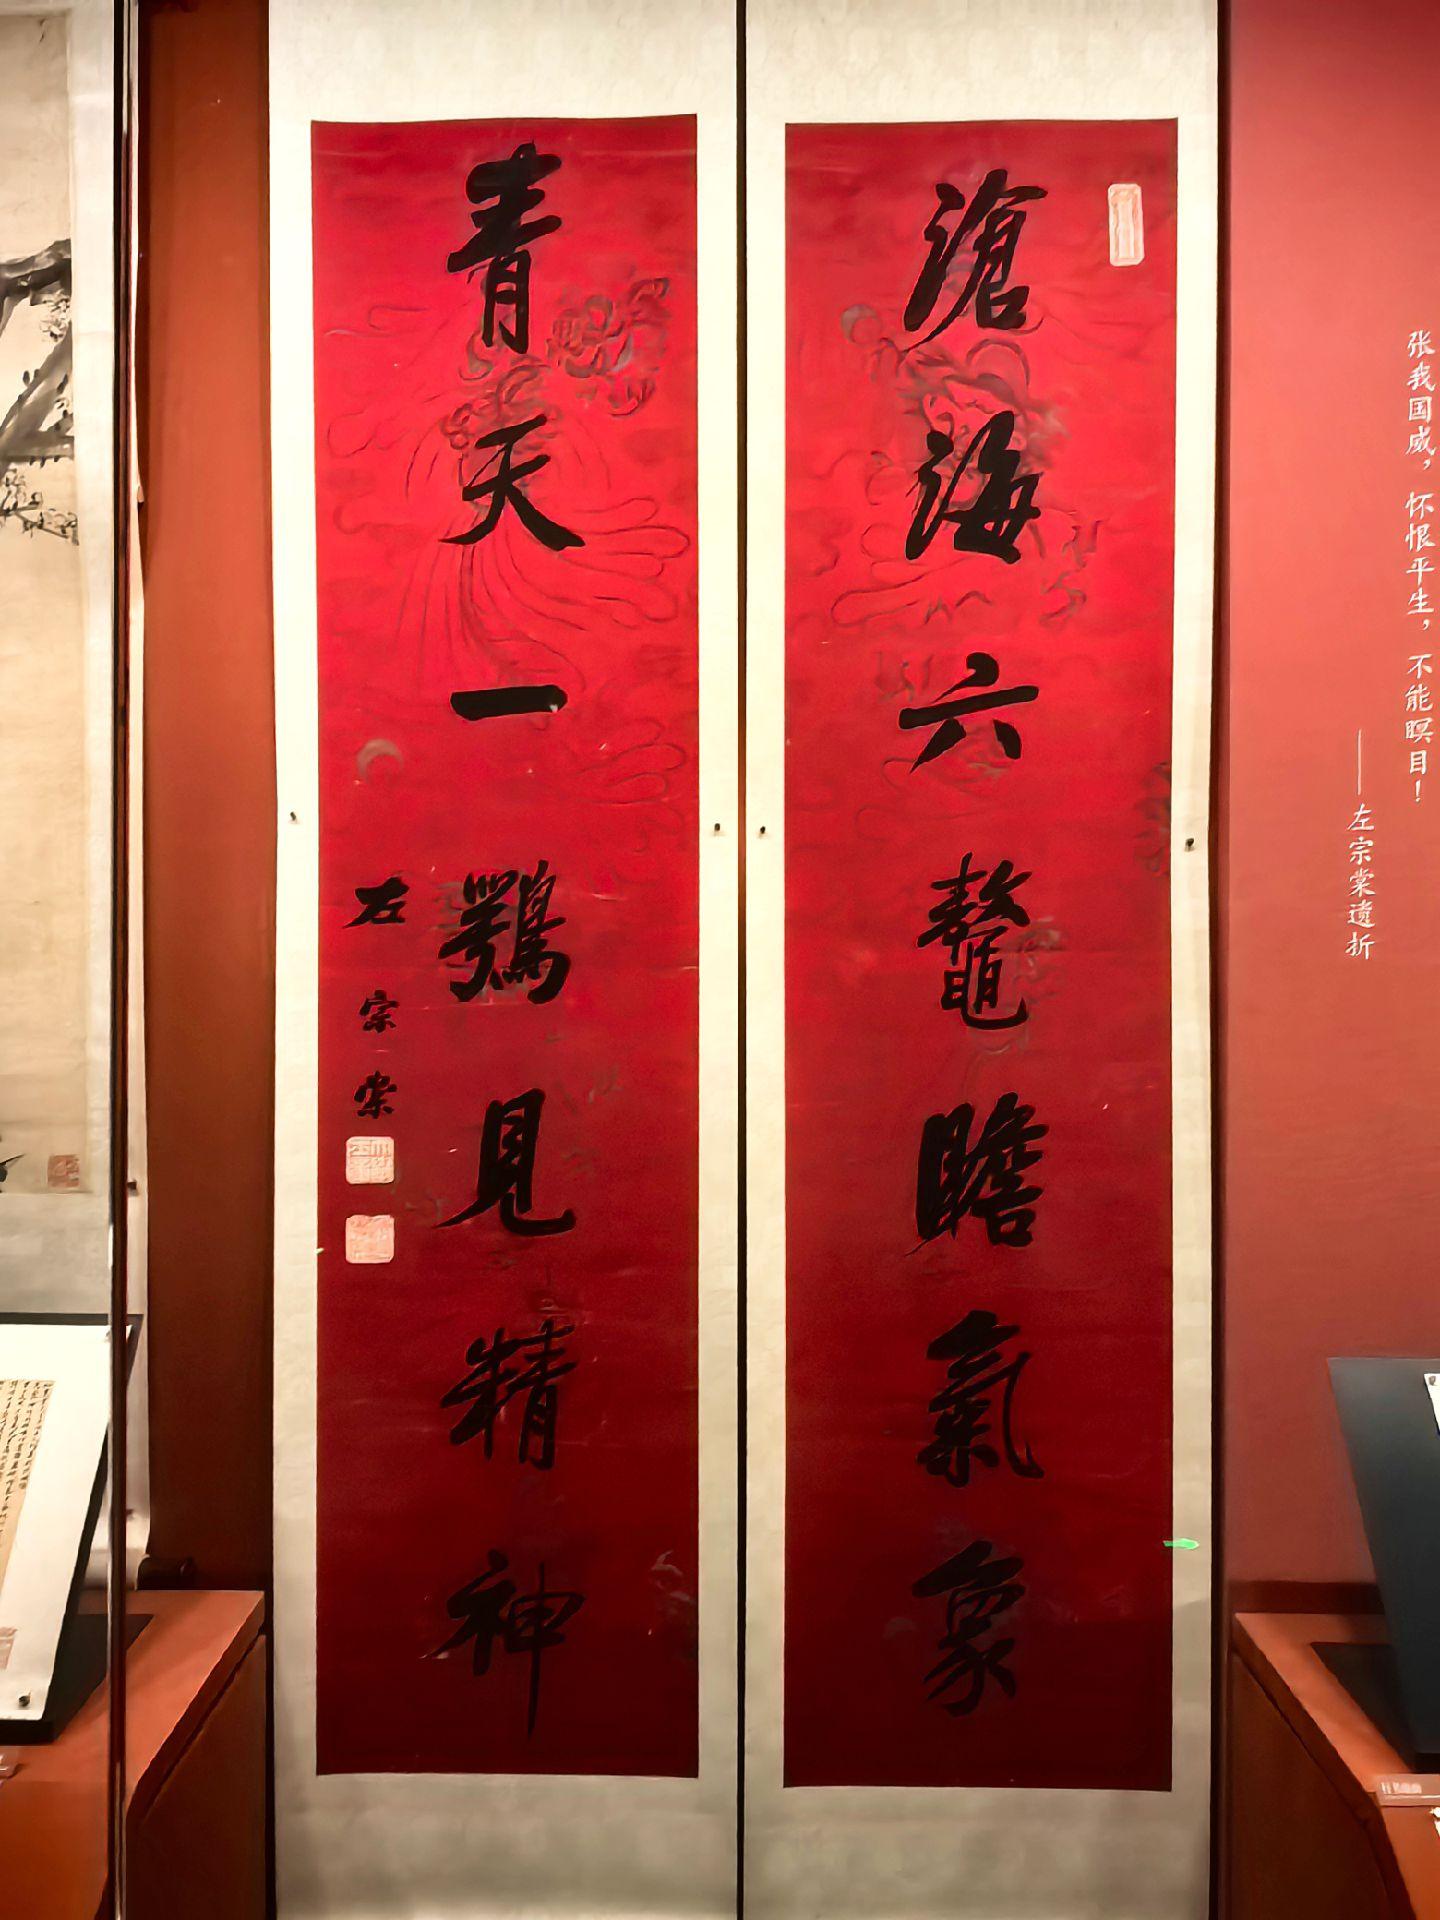 张我国威，怀恨平生，不能瞑目！
——左宗棠遗折
滄海六鼇瞻氣象
青天一鶚見精神
左宗棠